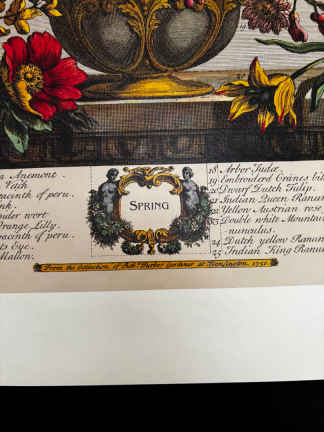 Anemont.
Vetch
jacinth of peru.
nk.
nder wort
range Lilly.
jacinth of peru.
ts Eye.
Mallon.
SPRING
18 Arbor Judæ.
19 Embroiderd Cranes bil
20 Dwarf Dutch Tulip.
21 Indian Queen Ranun
22 Yellow Austrian rose
23 Double white Mountain
nunculus.
24 Dutch yellow Ranun
25 Indian King Ranun
From the Collection of Robt. Furber Gardiner at Kensington. 1731